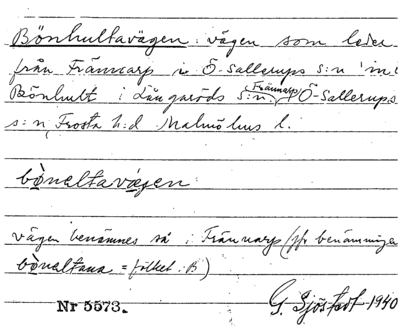 Bönhultavägen: vägen som leder
från Främcarp i Ö-Sallerups s:n in i
Bönhult i Långaröds s:n. (Främcarp, Ö-Sallerups
s:n, Frosta h:d Malmöhus l.
bònaltavægen:
vägen benämnes så i Främcarp (jfr benämninga
bònaltana = folket i B)
Nr 5573. G. Sjöstedt 1940